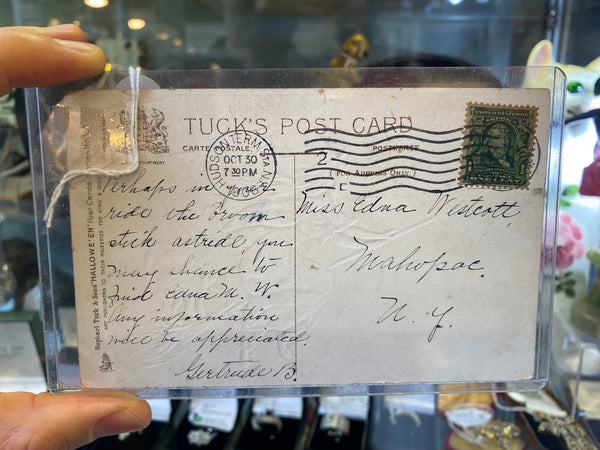 TUCK'S POST CARD
CARTE POSTALE.
POSTKARTE
(FOR ADDRESS ONLY.)
HUDSON TERM. STA. N.Y.
OCT 30
7 30 PM
2
E
Raphael Tuck & Sons' "HALLOWE'EN" Post Cards Series No.
ART PUBLISHERS TO THEIR MAJESTIES THE KING &
Perhaps in
ride the broom
stick astride, you
may chance to
find Edna M. W.
Any information
will be appreciated.
Gertrude B.
Miss Edna Westcott,
Mahopac.
N. Y.